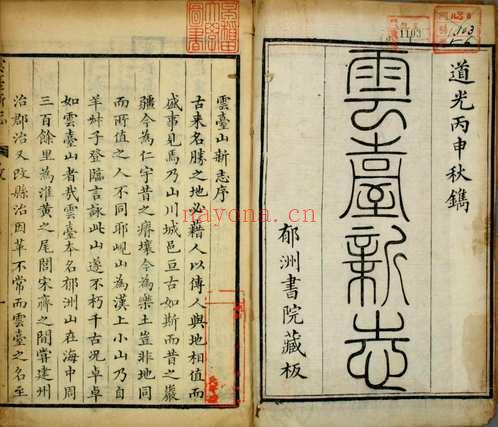 道光丙申秋鐫
雲臺新志
郁洲書院藏板
雲臺山新志序
古來名勝之地必藉人以傳人與地相值而
盛事見焉乃山川城邑亘古如斯而昔之巖
疆今為仁宇昔之瘠壤今為樂土豈非地同
而所值之人不同耶峴山為漢上小山乃自
羊叔子登臨言詠此山遂不朽千古況卓卓
如雲臺山者哉雲臺本名郁洲山在海中周
三百餘里為淮黃之尾閭宋齊之間嘗建州
治郡治又改縣治因革不常而雲臺之名至
1103
nayona.cn